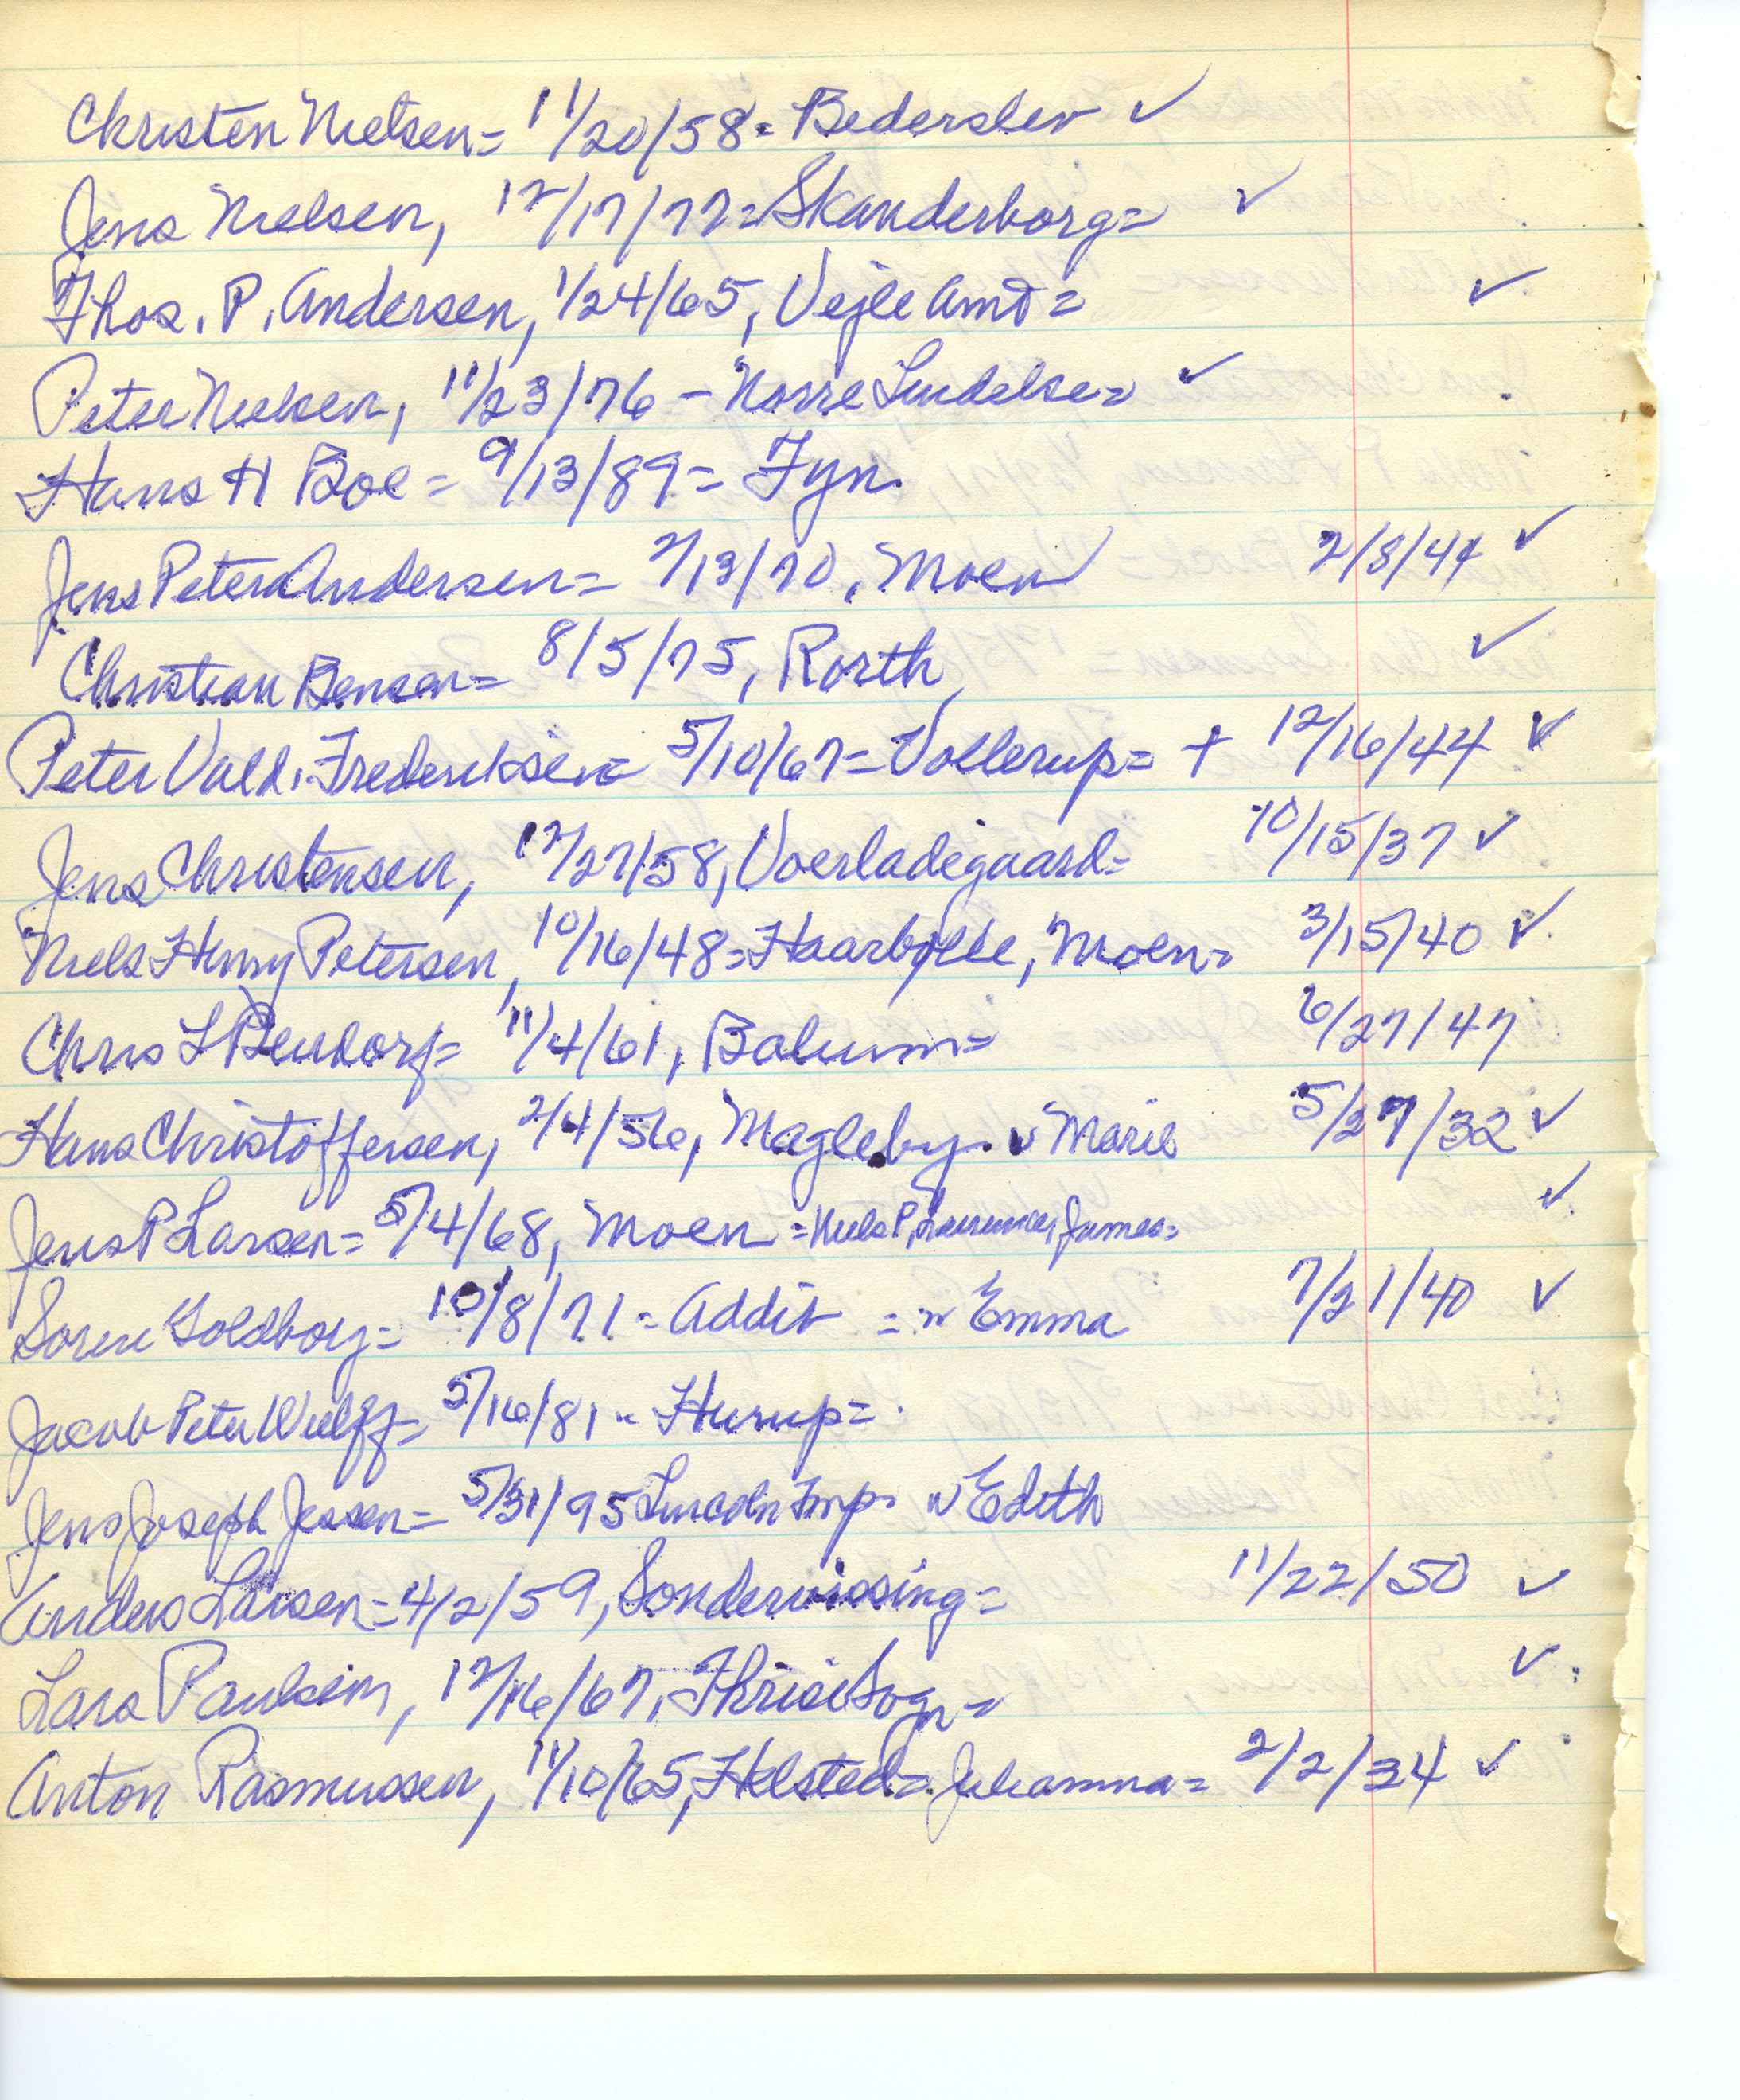 Christen Nielsen= 11/20/58= Bederslev ✓
Jens Nielsen, 12/17/77=Skanderborg= ✓
Thos. P. Andersen, 1/24/65, Vejle Amt= ✓
Peter Nielsen, 11/23/76 - Norre Lindelse= ✓
Hans H Boe = 9/13/89= Fyn.
Jens Peter Andersen= 2/13/70, Moen 2/8/44 ✓
Christian Bensen= 8/5/75, Rorth ✓
Peter Vald. Frederiksen= 5/10/67=Vollerup= + 12/16/44 ✓
Jens Christensen, 12/27/58, Voerladegaard= 10/15/37 ✓
Niels Henry Petersen, 10/16/48=Haarbølle, Moen= 3/15/40 ✓
Chris L Bendorf= 11/4/61, Balum= 6/27/47
Hans Christoffersen, 2/4/56, Magleby. w Marie 5/27/32 ✓
Jens P Larsen= 5/4/68, Moen =Niels P, Laurence, James= ✓
Soren Goldborg= 10/8/71 - Addit = w Emma 7/21/40 ✓
Jacob Peter Wulff= 5/16/81 - Hurup=
Jens Joseph Jessen= 5/31/95 Lincoln Tmp. w Edith
Anders Larsen=4/2/59, Sondervissing= 11/22/50 ✓
Lars Paulsen, 12/16/67, Thrise Sogn= ✓
Anton Rasmussen, 11/10/65, Helsted= Johanna= 2/2/34 ✓